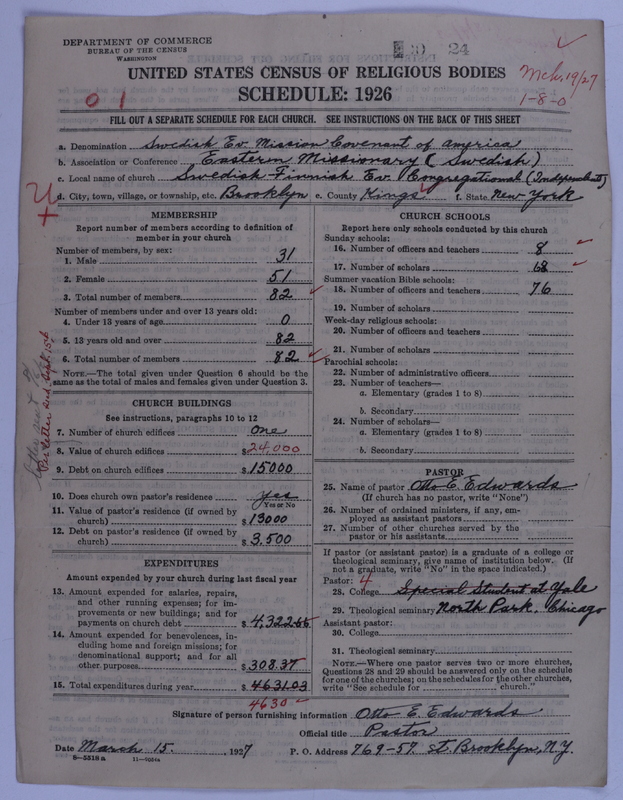 DEPARTMENT OF COMMERCE
BUREAU OF THE CENSUS
WASHINGTON
24
UNITED STATES CENSUS OF RELIGIOUS BODIES
SCHEDULE: 1926
Mch. 19/27
1-8-0
0 1
FILL OUT A SEPARATE SCHEDULE FOR EACH CHURCH. SEE INSTRUCTIONS ON THE BACK OF THIS SHEET
a. Denomination Swedish Ev. Mission Covenant of America
b. Association or Conference Eastern Missionary (Swedish)
c. Local name of church Swedish-Finnish Ev. Congregational (Independent)
d. City, town, village, or township, etc. Brooklyn e. County Kings f. State New York
MEMBERSHIP
Report number of members according to definition of member in your church
Number of members, by sex:
1. Male 31
2. Female 51
3. Total number of members 82
Number of members under and over 13 years old:
4. Under 13 years of age 0
5. 13 years old and over 82
6. Total number of members 82
NOTE.—The total given under Question 6 should be the same as the total of males and females given under Question 3.
CHURCH BUILDINGS
See instructions, paragraphs 10 to 12
7. Number of church edifices One
8. Value of church edifices $24,000
9. Debt on church edifices $15000
10. Does church own pastor's residence Yes
Yes or No
11. Value of pastor's residence (if owned by church) $13000
12. Debt on pastor's residence (if owned by church) $3,500
EXPENDITURES
Amount expended by your church during last fiscal year
13. Amount expended for salaries, repairs, and other running expenses; for improvements or new buildings; and for payments on church debt $4,322.66
14. Amount expended for benevolences, including home and foreign missions; for denominational support; and for all other purposes $308.37
15. Total expenditures during year $4631.03
4630
CHURCH SCHOOLS
Report here only schools conducted by this church
Sunday schools:
16. Number of officers and teachers 8
17. Number of scholars 68
Summer vacation Bible schools:
18. Number of officers and teachers 76
19. Number of scholars
Week-day religious schools:
20. Number of officers and teachers
21. Number of scholars
Parochial schools:
22. Number of administrative officers
23. Number of teachers—
a. Elementary (grades 1 to 8)
b. Secondary
24. Number of scholars—
a. Elementary (grades 1 to 8)
b. Secondary
PASTOR
25. Name of pastor Otto E. Edwards
(If church has no pastor, write "None")
26. Number of ordained ministers, if any, employed as assistant pastors
27. Number of other churches served by the pastor or his assistants
If pastor (or assistant pastor) is a graduate of a college or theological seminary, give name of institution below. (If not a graduate, write "No" in the space indicated.)
Pastor: 4
28. College Special Student at Yale
29. Theological seminary North Park, Chicago
Assistant pastor:
30. College
31. Theological seminary
NOTE.—Where one pastor serves two or more churches, Questions 28 and 29 should be answered only on the schedule for one of the churches; on the schedules for the other churches, write "See schedule for church."
Signature of person furnishing information Otto E. Edwards
Official title Pastor
Date March 15, 1927 P. O. Address 769-57. St. Brooklyn, N.Y.
8-5518 a